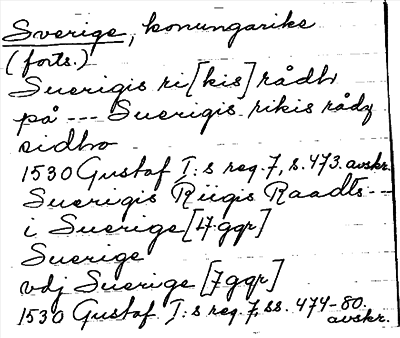 Sverige, konungarike
(forts.)
Suerigis ri[kis] rådh
på --- Suerigis rikis rådz
sidho
1530 Gustaf I:s reg. 7, s. 473. avskr.
Suerigis Riigis Raadts ---
i Suerige [17 ggr]
Suerige
vdj Suerige [7 ggr]
1530 Gustaf I:s reg. 7, ss. 474-80. avskr.